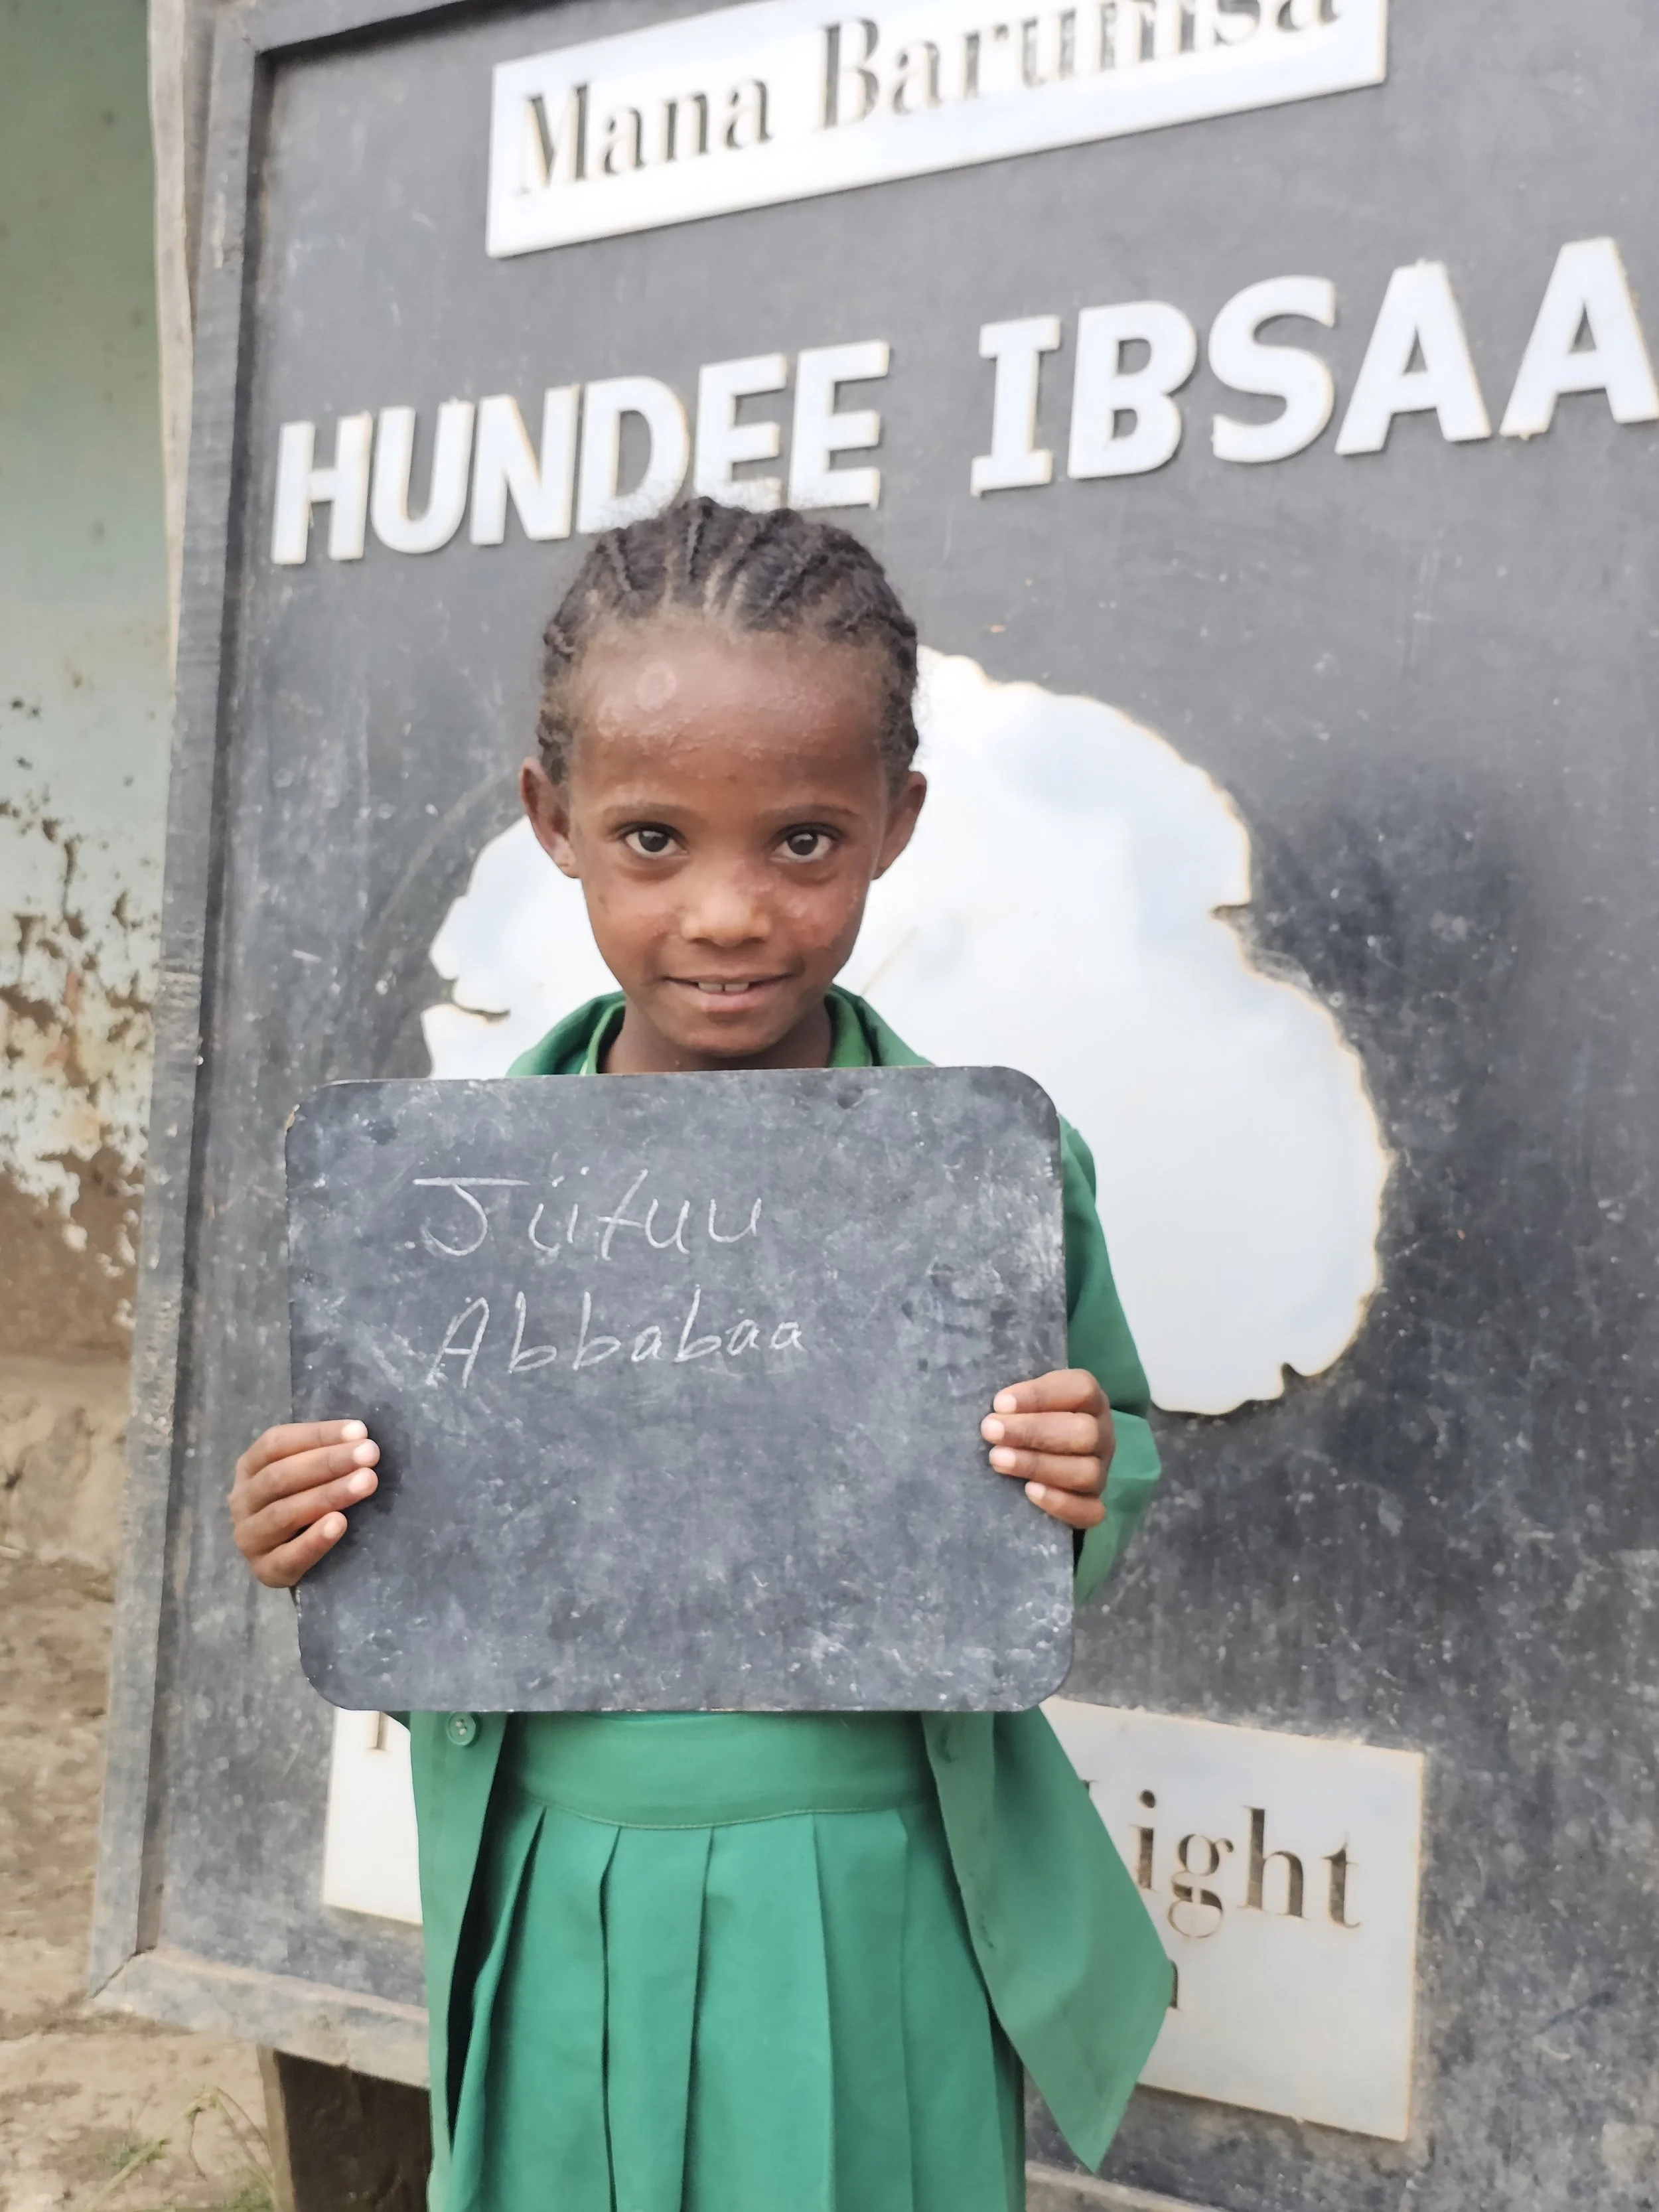 Mana Barumsa
HUNDEE IBSAA
Jiituu
Abbabaa
ight